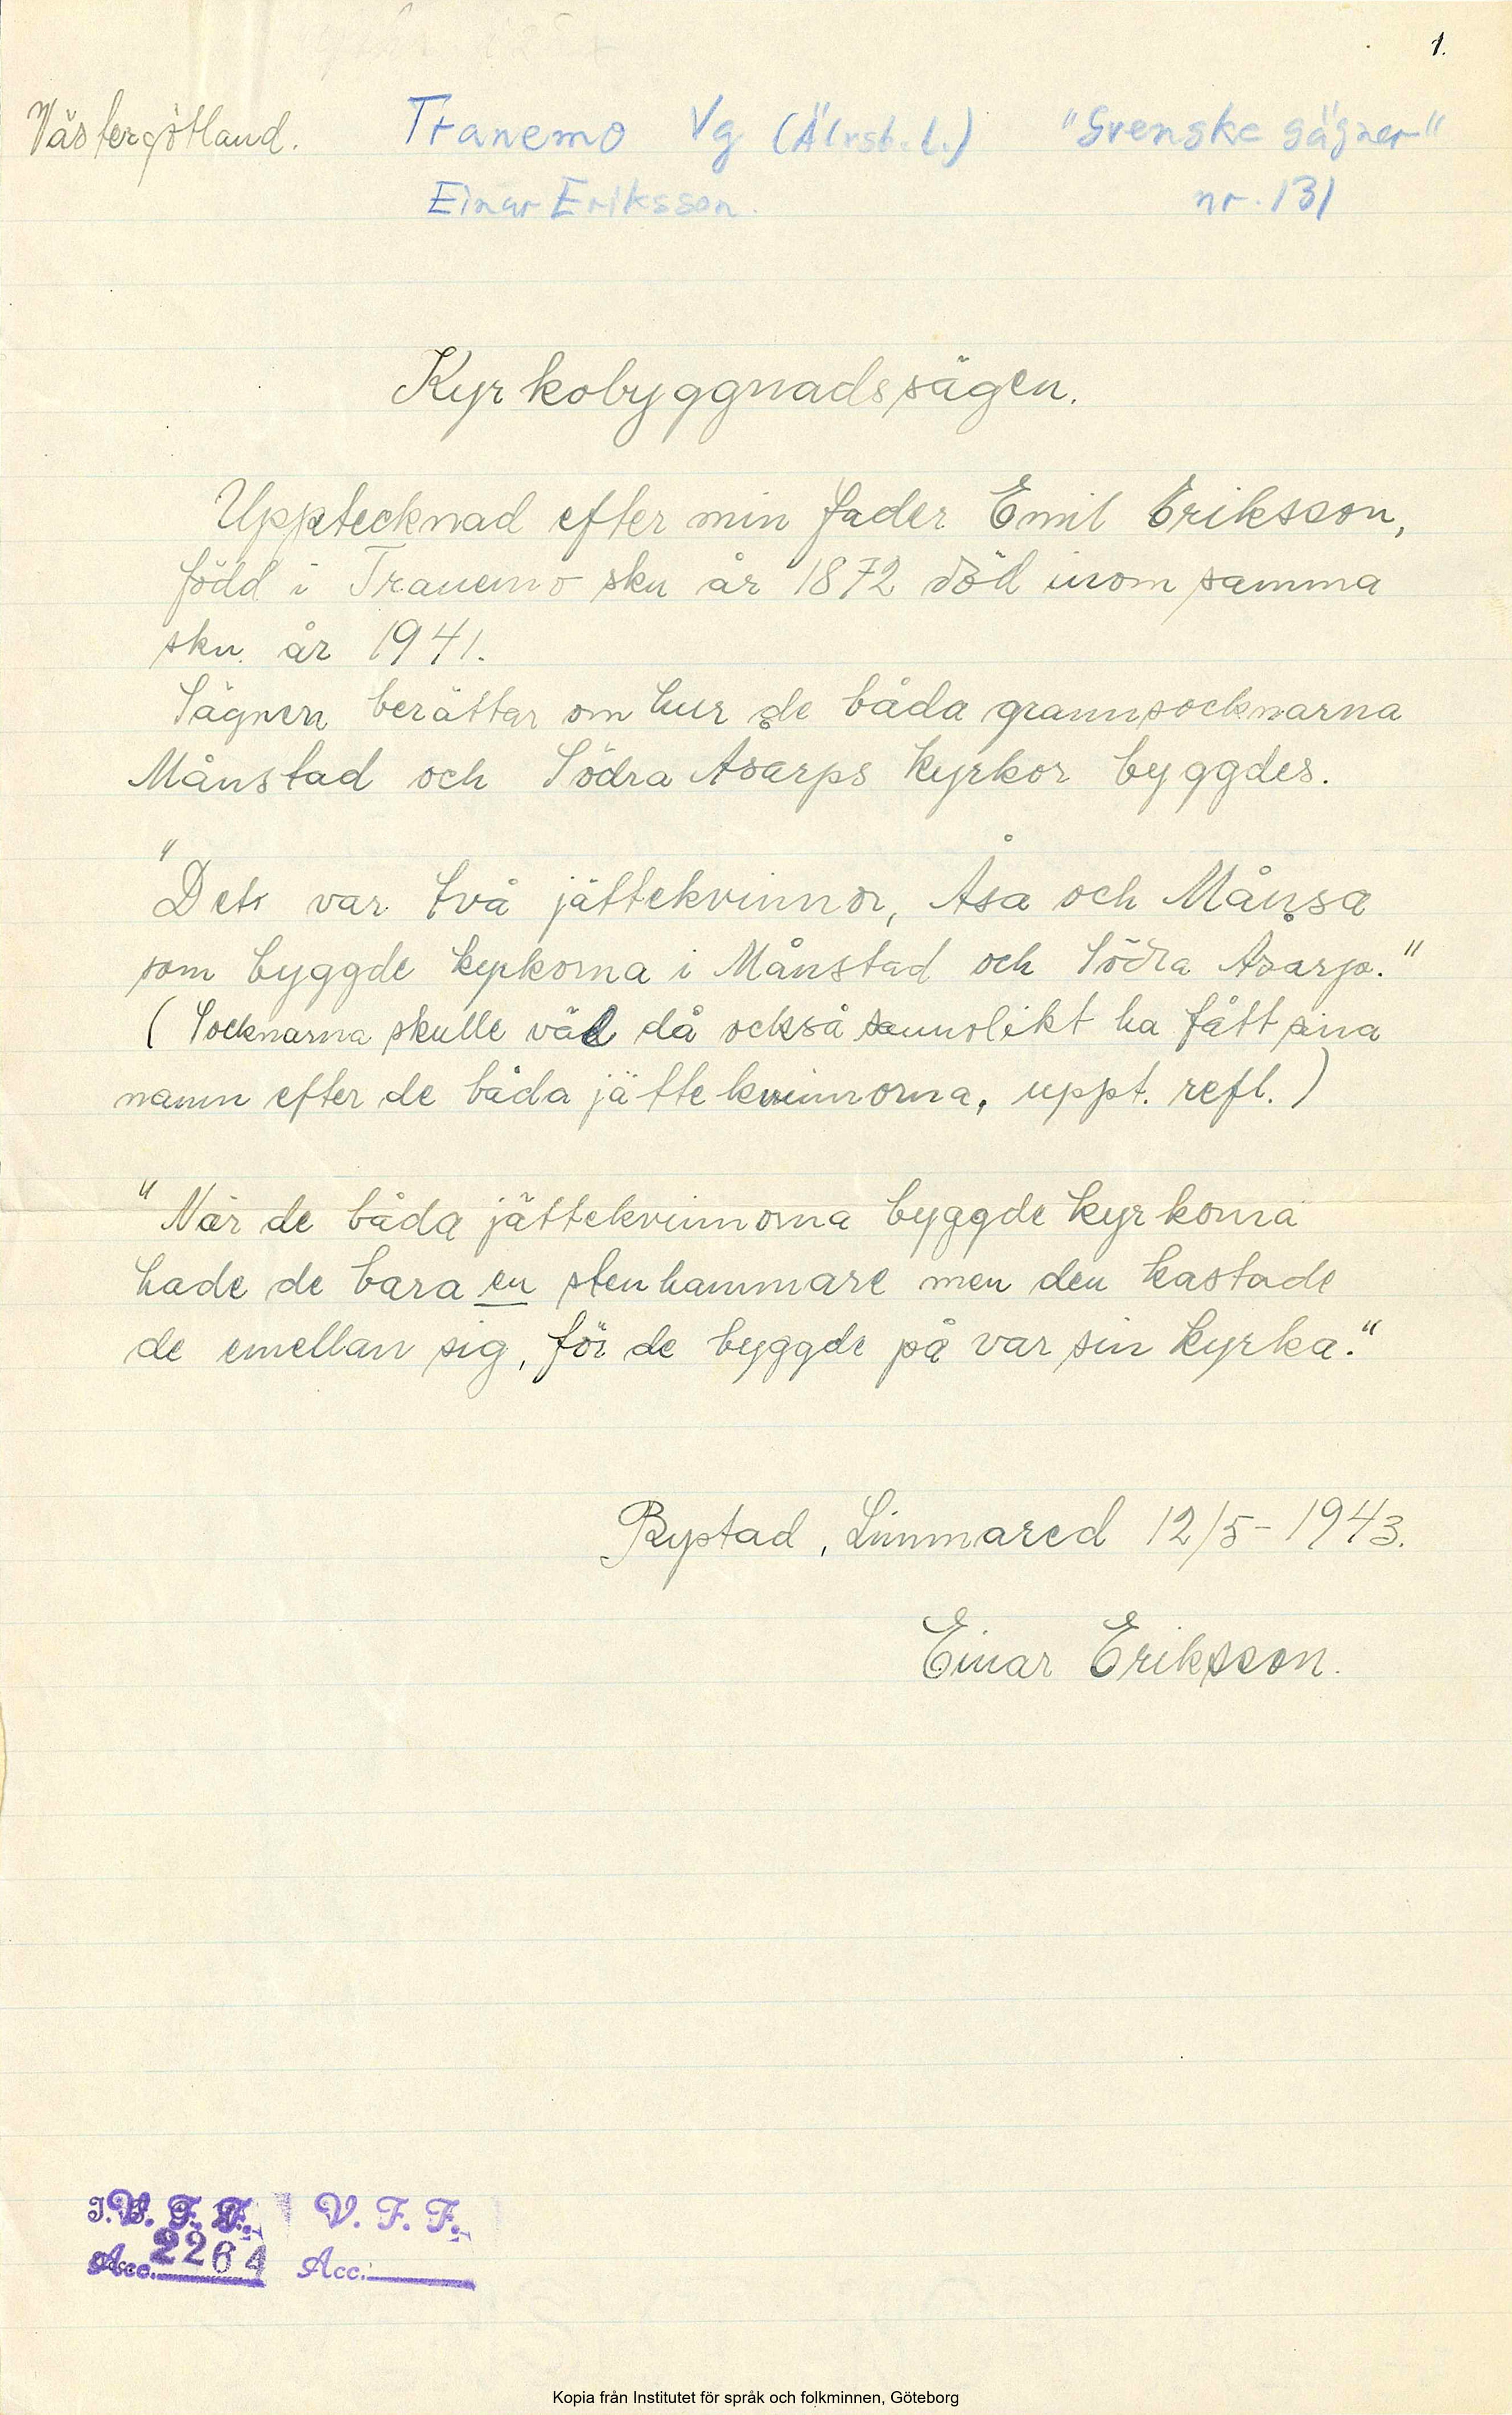 1.
Västergötland. Tranemo Vg (Älvsb. l.) "Svenska sägner"
Einar Eriksson. nr. 131
Kyrkobyggnadssägen.
Upptecknad efter min fader Emil Eriksson,
född i Tranemo skn år 1872 död inom samma
skn. år 1941.
Sägnen berättar om hur de båda grannsocknarna
Månstad och Södra Åsarps kyrkor byggdes.
"Det var två jättekvinnor, Åsa och Månsa
som byggde kyrkorna i Månstad och Södra Åsarp."
(Socknarna skulle väl då också sannolikt ha fått sina
namn efter de båda jättekvinnorna, uppt. refl.)
"När de båda jättekvinnorna byggde kyrkorna
hade de bara en stenhammare men den kastade
de emellan sig, för de byggde på var sin kyrka."
Rystad, Limmared 12/5-1943.
Einar Eriksson.
I.V.F.F. V.F.F.
Acc. 2264 Acc.
Kopia från Institutet för språk och folkminnen, Göteborg